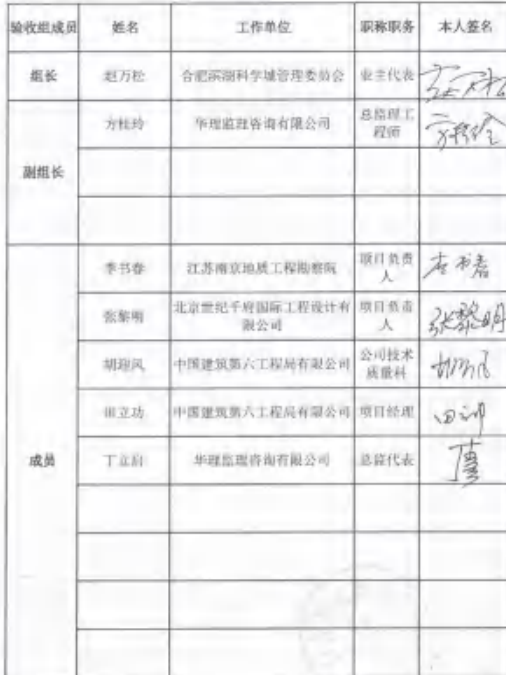 验收组成员 姓名 工作单位 职称职务 本人签名
组长 赵万松 合肥滨湖科学城管理委员会 业主代表
方桂玲 华理监理咨询有限公司 总监理工
程师
副组长
季书春 江苏南京地质工程勘察院 项目负责
人
张黎明 北京世纪千府国际工程设计有
限公司 项目负责
人 张黎明
胡迎风 中国建筑第六工程局有限公司 公司技术
质量科
田立功 中国建筑第六工程局有限公司 项目经理
成员 丁立启 华理监理咨询有限公司 总监代表